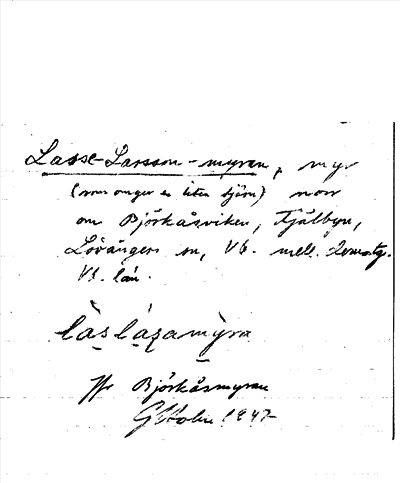 Lasse-Larsson-myren, myr
(som omger en liten tjärn) norr
om Björkåsviken, Fjälbyn,
Lövångers sn, Vb. mell. domstg.
Vb. län.
làslásamỳra
Jfr Björkåsmyran
GHolm 1947